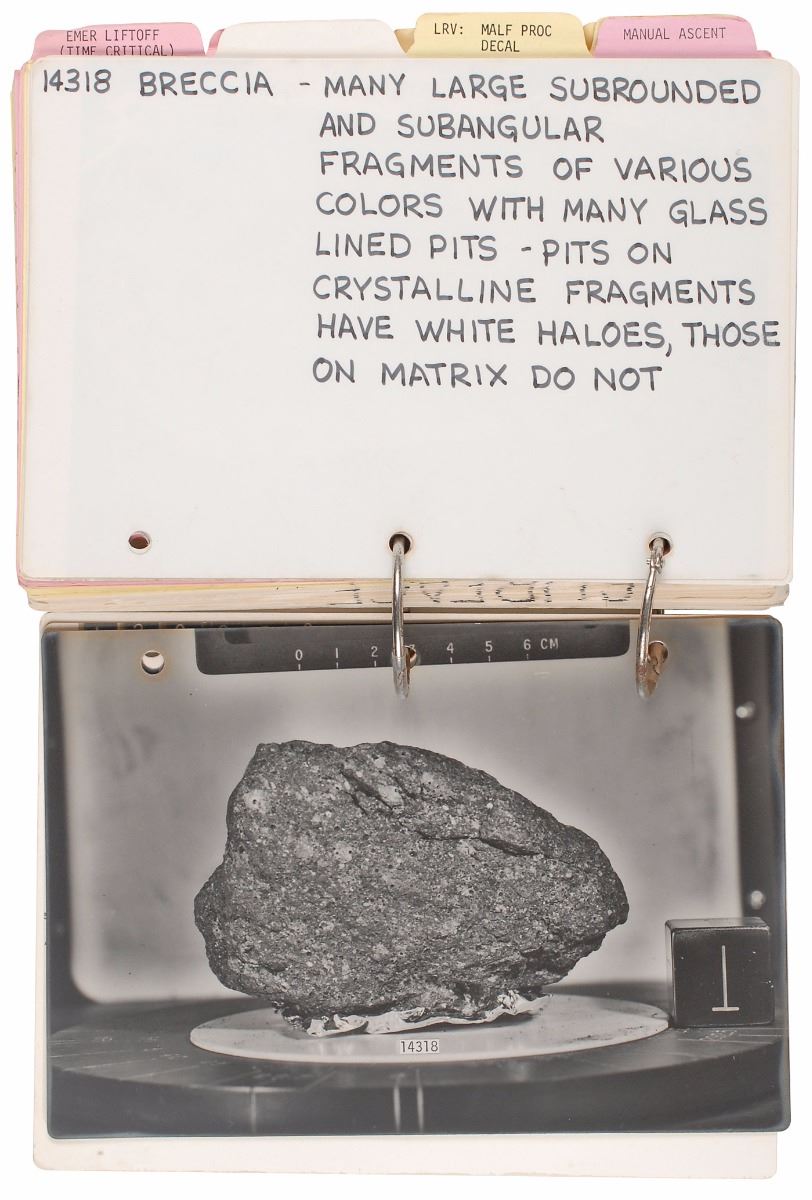 EMER LIFTOFF
(TIME CRITICAL)
LRV: MALF PROC
DECAL
MANUAL ASCENT
14318 BRECCIA - MANY LARGE SUBROUNDED
AND SUBANGULAR
FRAGMENTS OF VARIOUS
COLORS WITH MANY GLASS
LINED PITS - PITS ON
CRYSTALLINE FRAGMENTS
HAVE WHITE HALOES, THOSE
ON MATRIX DO NOT
0 1 2 3 4 5 6 CM
14318